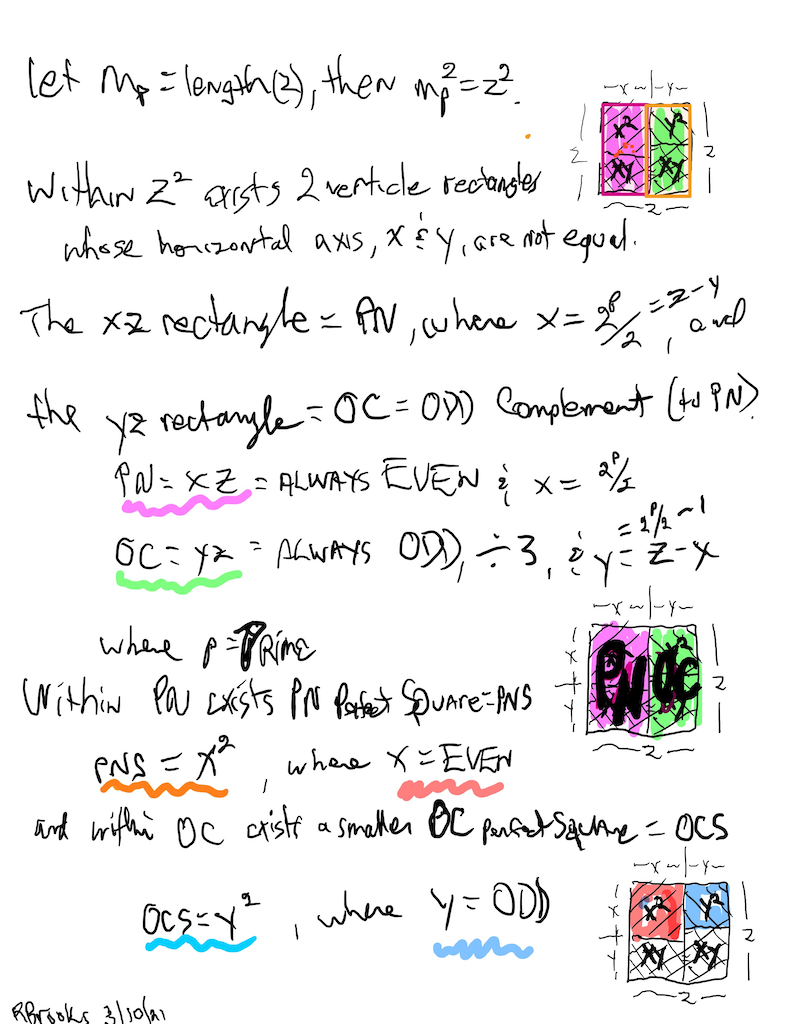 let Mp = length(z), then Mp² = z².
x y
x² y²
z z
xy xy
z
Within z² exists 2 verticle rectangles
whose horizontal axis, x & y, are not equal.
The xz rectangle = PN, where x = 2ᵖ/2 = z-y, and
the yz rectangle = OC = ODD Complement (to PN).
PN = xz = ALWAYS EVEN & x = 2ᵖ/2
= 2ᵖ/2 -1
OC = yz = ALWAYS ODD, ÷3, & y = z-x
where p = PRime
x y
x
PN OC z
y
z
Within PN exists PN Perfect Square = PNS
PNS = x², where x = EVEN
and within OC exists a smaller OC perfect Square = OCS
x y
x x² y²
z
y xy xy
z
OCS = y², where y = ODD
RBrooks 3/10/21